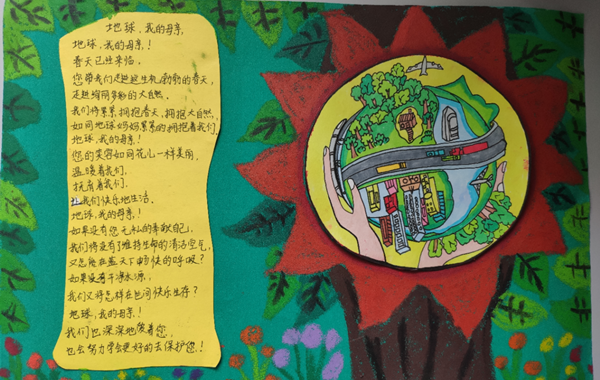 地球，我的母亲，
地球，我的母亲！
春天已经来临，
您带我们走进这生机勃勃的春天，
走进绚丽多彩的大自然，
我们将紧紧拥抱春天，拥抱大自然，
如同地球妈妈紧紧的拥抱着我们，
地球，我的母亲！
您的笑容如同花儿一样美丽，
温暖着我们，
抚育着我们，
让我们快乐地生活，
地球，我的母亲！
如果没有您无私的奉献自己，
我们将没有了维持生命的清洁空气，
又怎能在蓝天下畅快的呼吸？
如果没有干净水源，
我们又将怎样在世间快乐生存？
地球，我的母亲！
我们也深深地爱着您，
也会努力学会更好的去保护您！